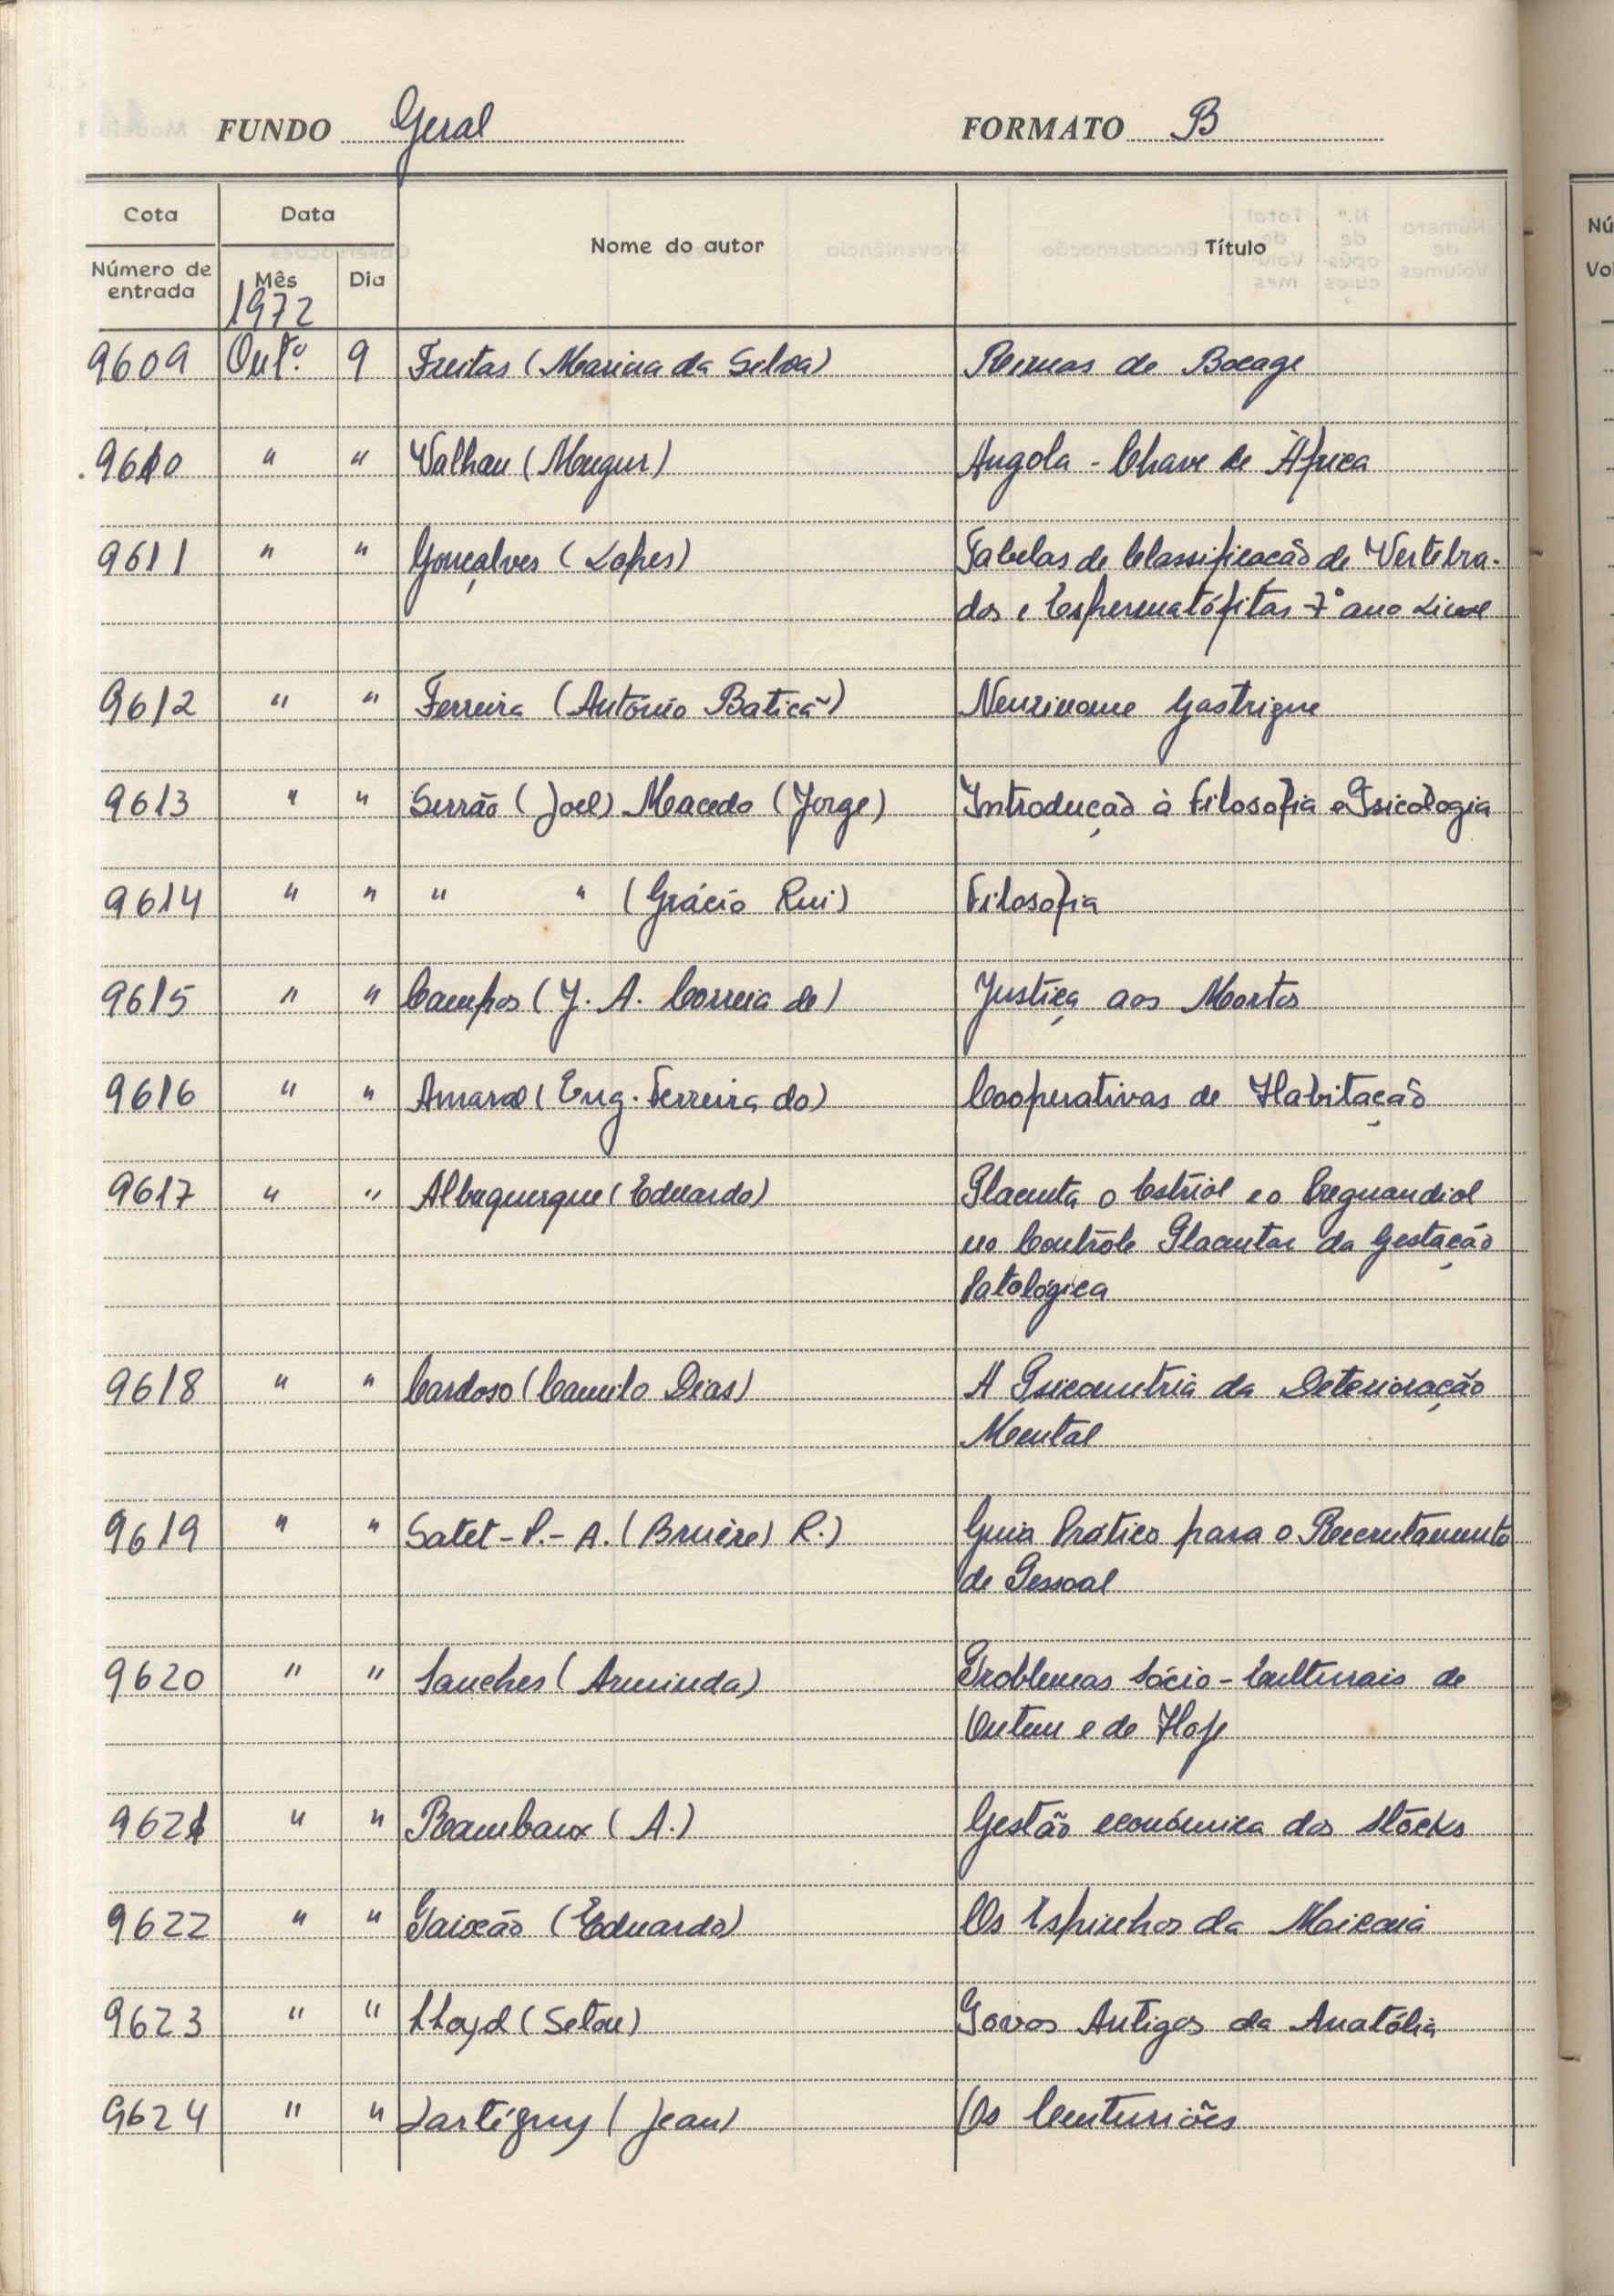 FUNDO Geral FORMATO B
Cota Data Nome do autor Título
Número de entrada Mês Dia
1972
9609 Outº. 9 Freitas (Marina da Silva) Rimas de Bocage
9610 " " Valhau (Mugur) Angola - Chave de África
9611 " " Gonçalves (Lopes) Tabelas de Classificação de Vertebra-
dos e Espermatófitas 7º ano Liceal
9612 " " Ferreira (António Baticã) Neurinome Gastrique
9613 " " Serrão (Joel) Macedo (Jorge) Introdução à Filosofia e Psicologia
9614 " " " " (Grácio Rui) Filosofia
9615 " " Campos (J. A. Correia de) Justiça aos Mortos
9616 " " Amaral (Eng. Ferreira do) Cooperativas de Habitação
9617 " " Albuquerque (Eduardo) Placenta o Estriol e o Pregnandiol
no Contrôle Placentar da Gestação
Patológica
9618 " " Cardoso (Camilo Dias) A Psicometria da Deterioração
Mental
9619 " " Satet - P. - A. (Bruère) R.) Guia Prático para o Recrutamento
de Pessoal
9620 " " Sanches (Arminda) Problemas Sócio - Culturais de
Ontem e de Hoje
9621 " " Rambaux (A.) Gestão económica dos Stócks
9622 " " Paixão (Eduardo) Os Espinhos da Micaia
9623 " " Lloyd (Seton) Povos Antigos da Anatólia
9624 " " Lartéguy (Jean) Os Centuriões
Nú
Vol